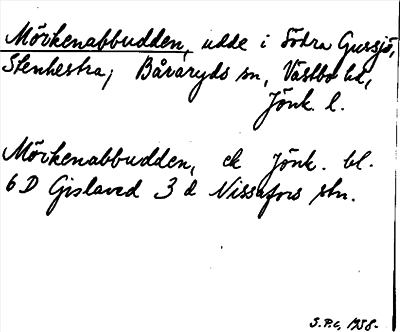 Mörkenabbudden, udde i Södra Gussjö,
Stenhestra, Båraryds sn, Västbo hd,
Jönk. l.
Mörkenabbudden, ek Jönk. bl.
6 D Gislaved 3 d Nissafors stn.
S.P.c, 1958.